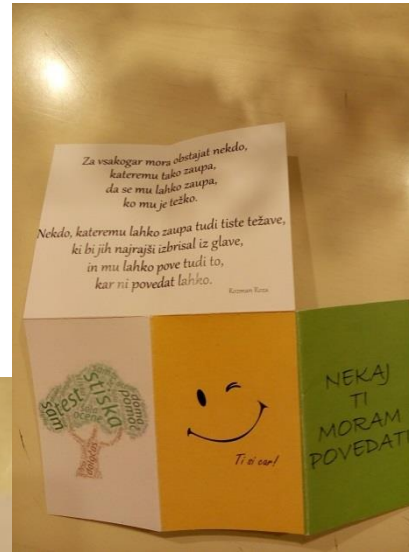 Za vsakogar mora obstajat nekdo,
kateremu tako zaupa,
da se mu lahko zaupa,
ko mu je težko.
Nekdo, kateremu lahko zaupa tudi tiste težave,
ki bi jih najrajši izbrisal iz glave,
in mu lahko pove tudi to,
kar ni povedat lahko.
stiska
test
sam
ocena
doma
pomoč
dolgčas
Ti si car!
NEKAJ
TI
MORAM
POVEDATI